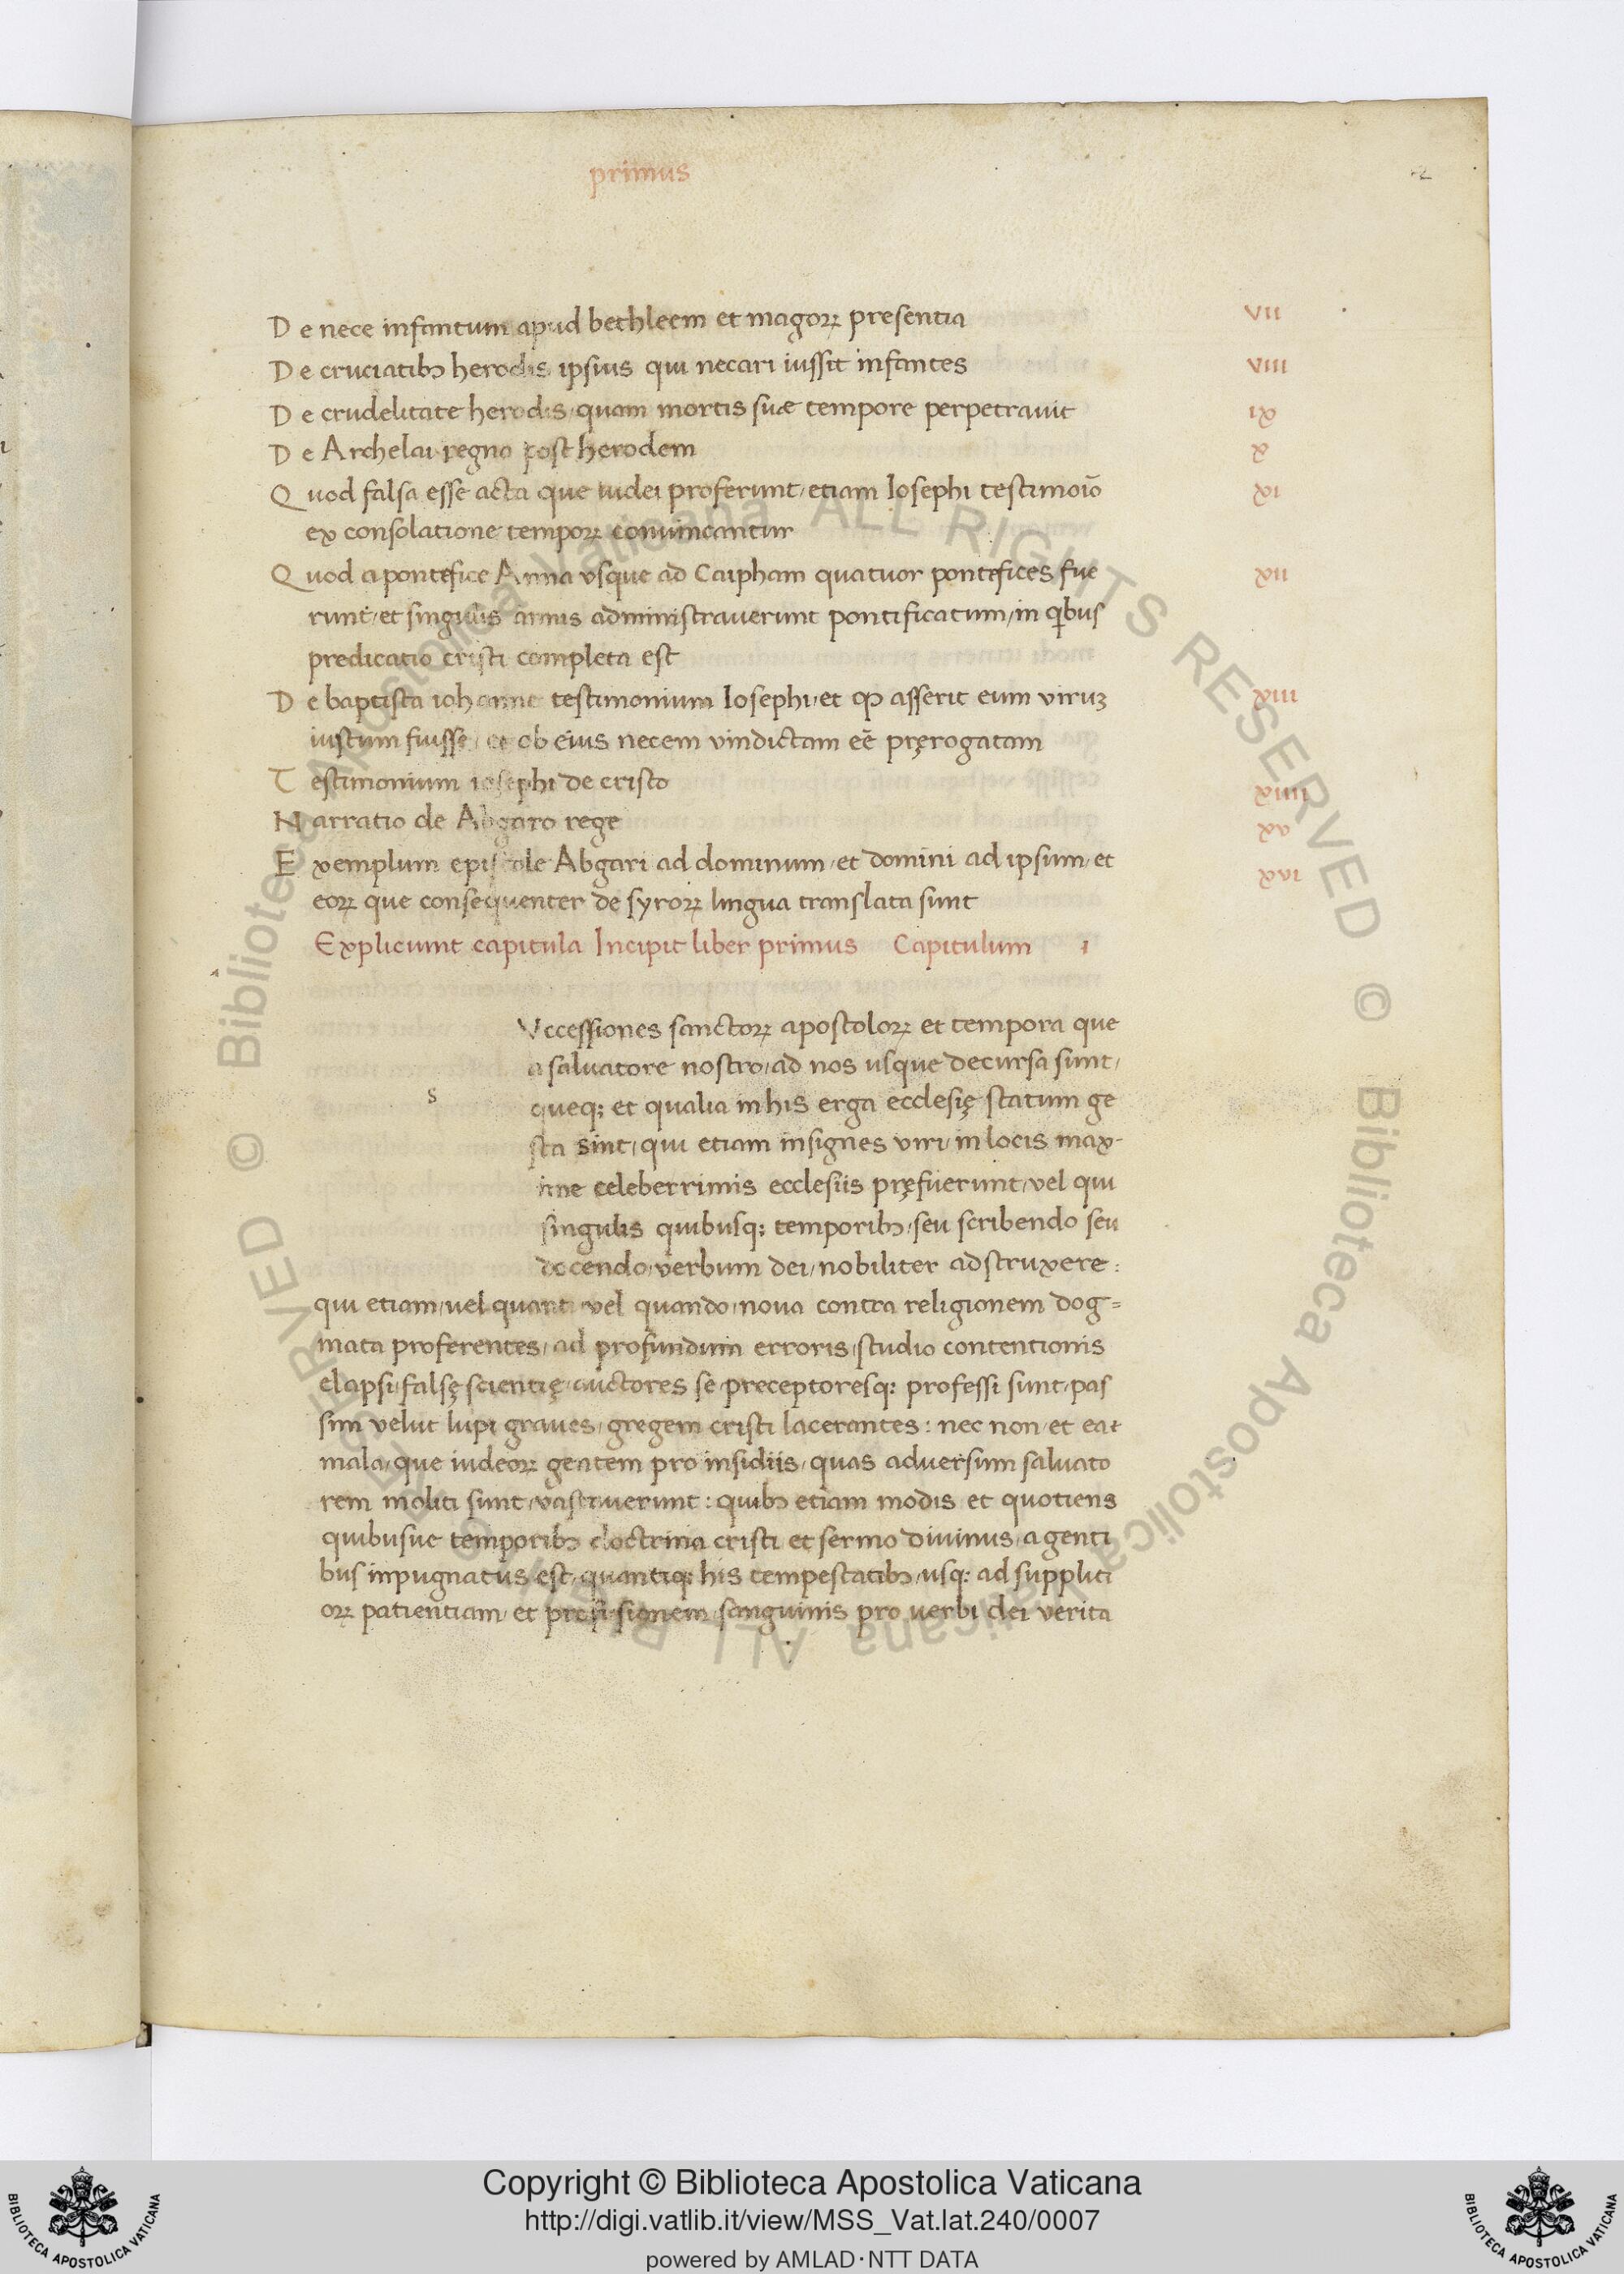 primus
2
D e nece infantum apud bethleem et magoꝝ presentia VII
D e cruciatibꝫ herodis ipsius qui necari iussit infantes VIII
D e crudelitate herodis/quam mortis suæ tempore perpetrauit IX
D e Archelai regno post herodem X
Q uod falsa esse acta que iudei proferunt/etiam Iosephi testimoīo XI
ex consolatione tempoꝝ conuincantur
Q uod a pontefice Anna vsque ad Caipham quatuor pontefices fue XII
runt/et singulis annis administrauerunt pontificatum/in qͥbus
predicatio cristi completa est
D e baptista iohanne testimonium Iosephi/et ꝙ asserit eum viruꝫ XIII
iustum fuisse/et ob eius necem vindictam eē pręrogatam
T estimonium iosephi de cristo XIIII
N arratio de Abgaro rege XV
E xemplum epistole Abgari ad dominum/et domini ad ipsum/et XVI
eoꝝ que consequenter de syroꝝ lingua translata sunt
Expliciunt capitula Incipit liber primus Capitulum I
s
Vccessiones sanctoꝝ apostoloꝝ et tempora que
a saluatore nostro/ad nos usque decursa sunt/
queq; et qualia in his erga ecclesię statum ge
sta sint/qui etiam insignes viri/in locis max-
ime celeberrimis ecclesiis pręfuerunt/vel qui
singulis quibusq; temporibꝫ/seu scribendo seu
docendo/verbum dei/nobiliter adstruxere:
qui etiam/uel quanti/vel quando/noua contra religionem dog=
mata proferentes/ad profundum erroris/studio contentionis
elapsi/falsę scientię/auctores se preceptoresq; professi sunt/pas
sim velut lupi graues/gregem cristi lacerantes: nec non/et ea
mala/que iudeoꝝ gentem pro insidiis/quas aduersum saluato
rem moliti sunt/vastauerunt: quibꝫ etiam modis et quotiens
quibusue temporibꝫ doctrina cristi et sermo diuinus/a genti
bus inpugnatus est/quantiq; his tempestatibꝫ/usq; ad supplici
oꝝ patientiam/et profusionem sanguinis pro uerbi dei verita
Copyright © Biblioteca Apostolica Vaticana
http://digi.vatlib.it/view/MSS_Vat.lat.240/0007
powered by AMLAD·NTT DATA
BIBLIOTECA APOSTOLICA VATICANA
BIBLIOTECA APOSTOLICA VATICANA
© Biblioteca Apostolica Vaticana ALL RIGHTS RESERVED © Biblioteca Apostolica Vaticana ALL RIGHTS RESERVED